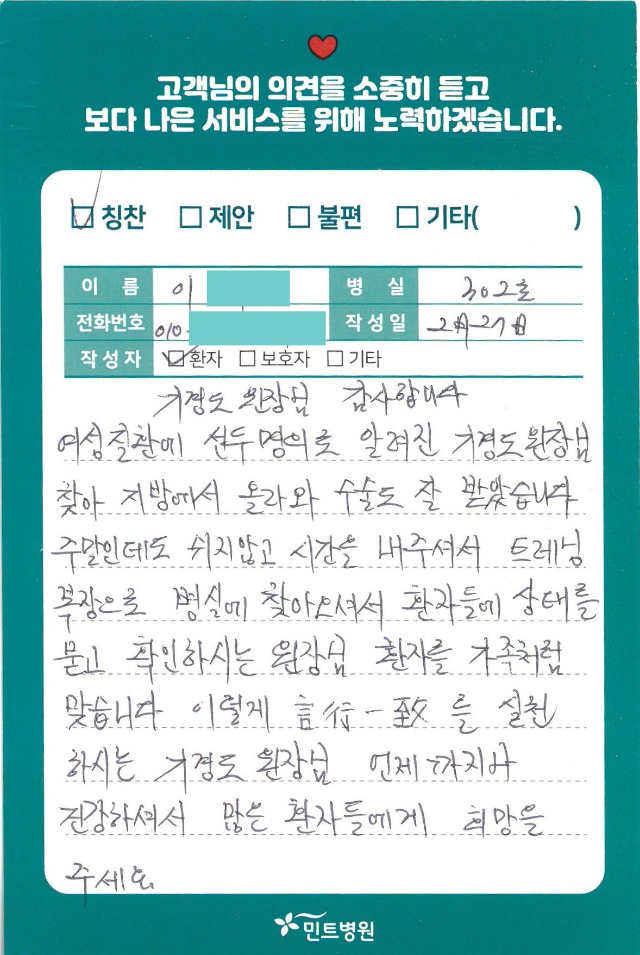 고객님의 의견을 소중히 듣고
보다 나은 서비스를 위해 노력하겠습니다.
칭찬 제안 불편 기타( )
이 름 이 병 실 302호
전화번호 010- 작성일 2月27日
작성자 환자 보호자 기타
기경도 원장님 감사합니다
여성질환에 선두명의로 알려진 기경도원장님
찾아 지방에서 올라와 수술도 잘 받았습니다
주말인데도 쉬지않고 시간을 내주셔서 트레닝
복장으로 병실에 찾아오셔서 환자들에 상태를
묻고 확인하시는 원장님 환자를 가족처럼
맞습니다 이렇게 言行一致를 실천
하시는 기경도 원장님 언제까지나
건강하셔서 많은 환자들에게 희망을
주세요
민트병원